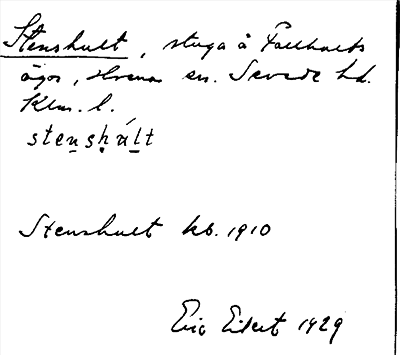 Stenshult, stuga å Fallhults
ägor, Hvena sn. Sevede hd.
Klm. l.
stens̥hált
Stenshult kb. 1910
Eric Eikert 1929